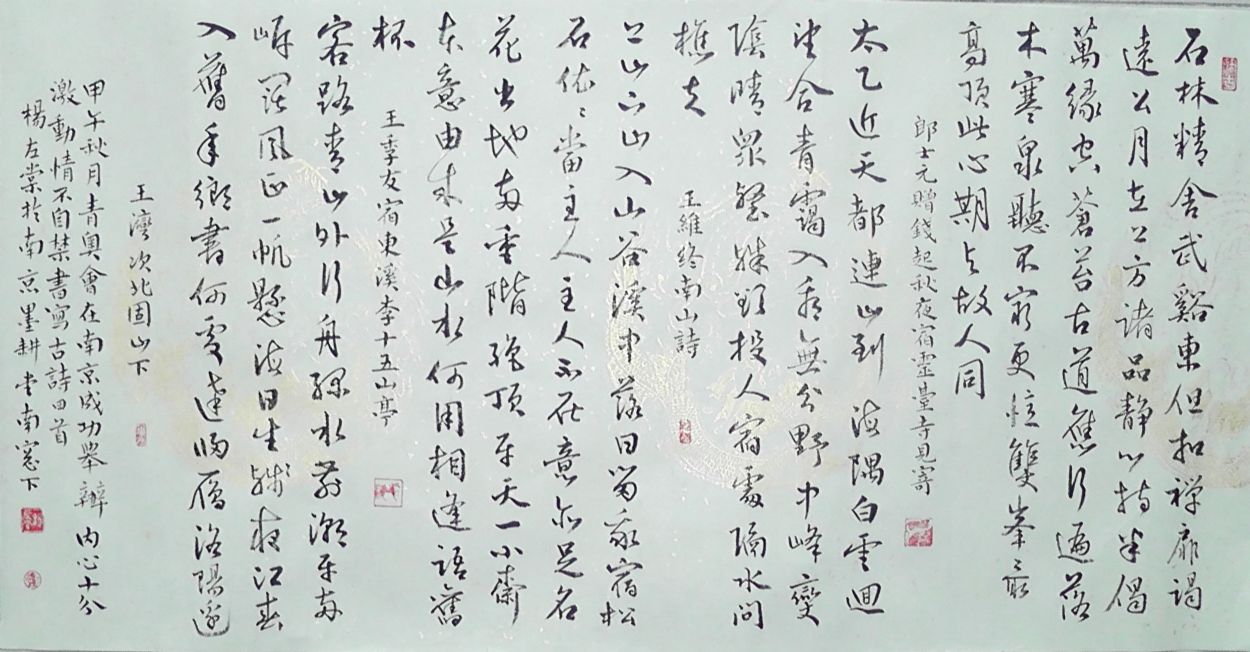 石林精舍武谿東但扣禪扉謁
遠公月在上方諸品静心持半偈
萬緣空蒼苔古道應行遍落
木寒泉聽不窮更憶雙峯最
高頂此心期与故人同
郎士元贈錢起秋夜宿靈臺寺見寄
太乙近天都連山到海隅白雲迴
望合青靄入看無分野中峰變
陰晴眾壑殊欲投人宿處隔水問
樵夫
王維終南山詩
上山下山入山谷溪中落日留我宿松
石依〻當主人主人不在意亦足名
花出地兩重階絶頂平天一小齋
本意由來是山水何用相逢語舊
杯
王季友宿東溪李十五山亭
客路青山外行舟綠水前潮平兩
岸闊風正一帆懸海日生殘夜江春
入舊年鄉書何處達歸雁洛陽邊
王灣次北固山下
甲午秋月青奧會在南京成功舉辦内心十分
激動情不自禁書寫古詩四首
楊左棠於南京墨耕堂南窓下